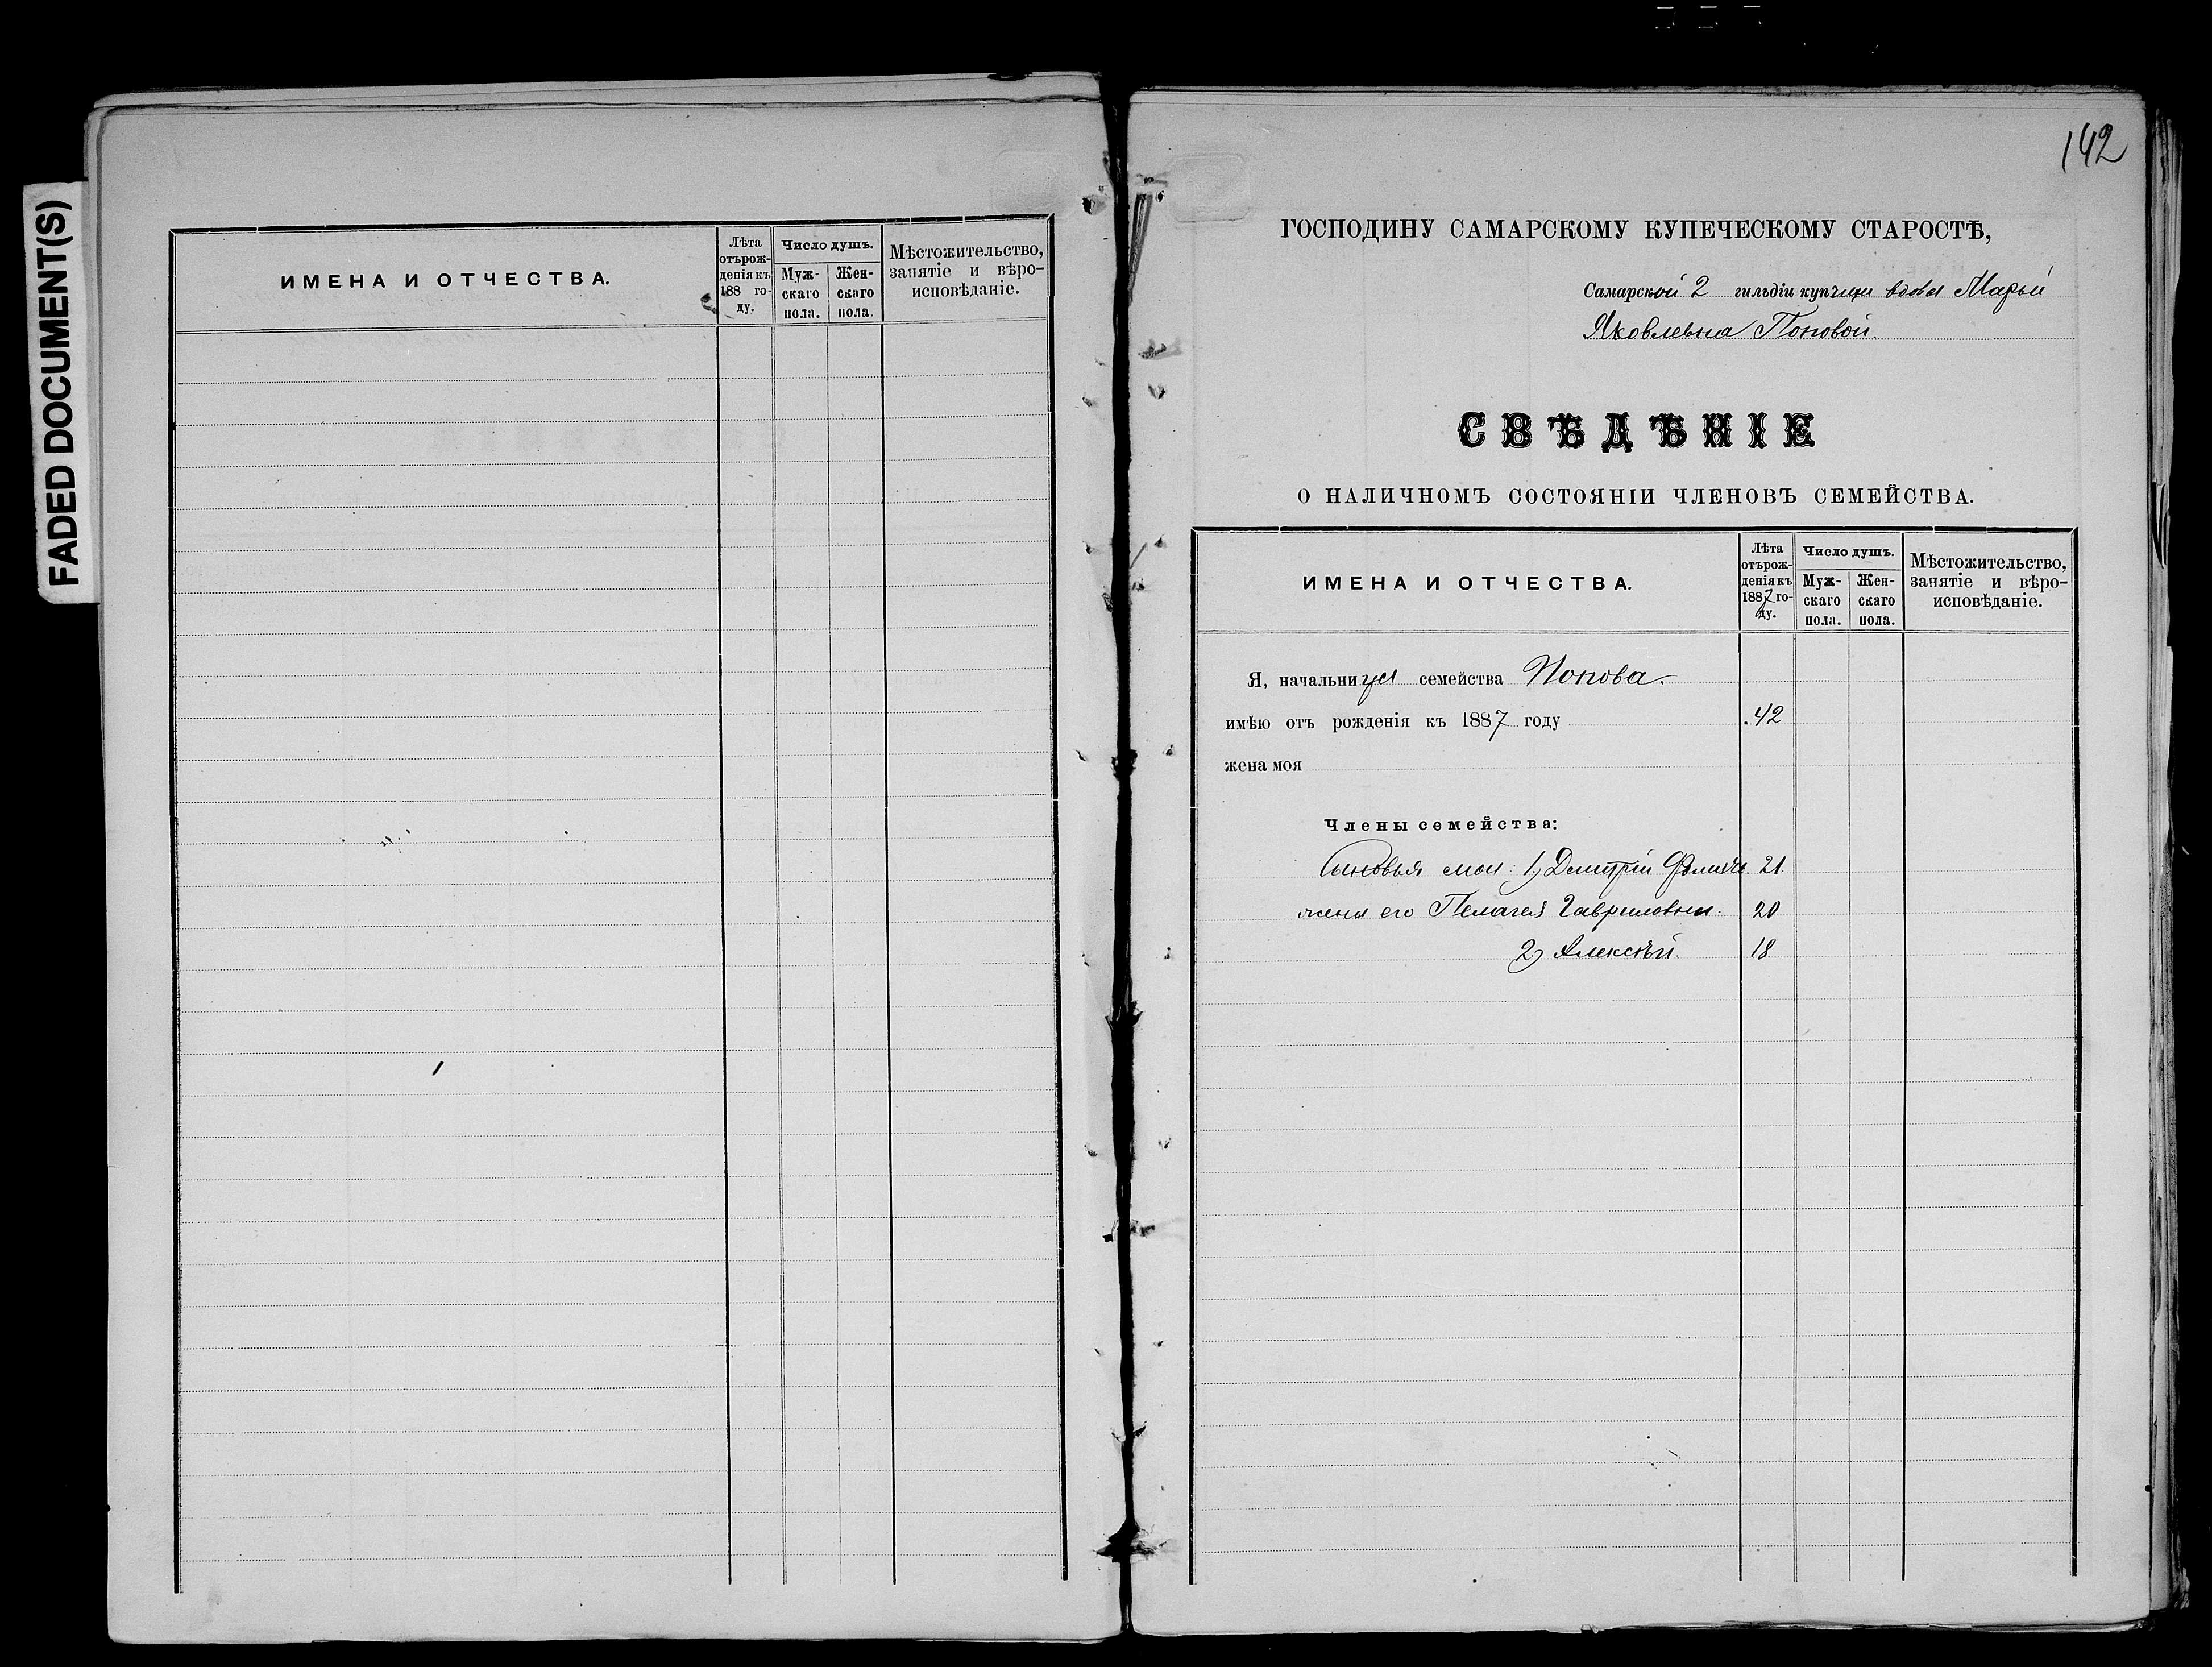 FADED DOCUMENT(S)
ИМЕНА И ОТЧЕСТВА.
Лѣта отърожденія къ 188 году.
Число душъ.
Мужскаго пола.
Женскаго пола.
Мѣстожительство, занятіе и вѣроисповѣданіе.
142
ГОСПОДИНУ САМАРСКОМУ КУПЕЧЕСКОМУ СТАРОСТѢ,
Самарской 2 гильдіи купчихи вдовы Марьи
Яковлевна Поповой.
СВѢДѢНІЕ
О НАЛИЧНОМЪ СОСТОЯНІИ ЧЛЕНОВЪ СЕМЕЙСТВА.
ИМЕНА И ОТЧЕСТВА.
Лѣта отърожденія къ 1887 году.
Число душъ.
Мужскаго пола.
Женскаго пола.
Мѣстожительство, занятіе и вѣроисповѣданіе.
Я, начальница семейства Попова.
имѣю отъ рожденія къ 1887 году 42
жена моя
Члены семейства:
Сыновья мои: 1) Дмитрій 21
жена его Пелагея Гавриловна. 20
2) Алексѣй. 18